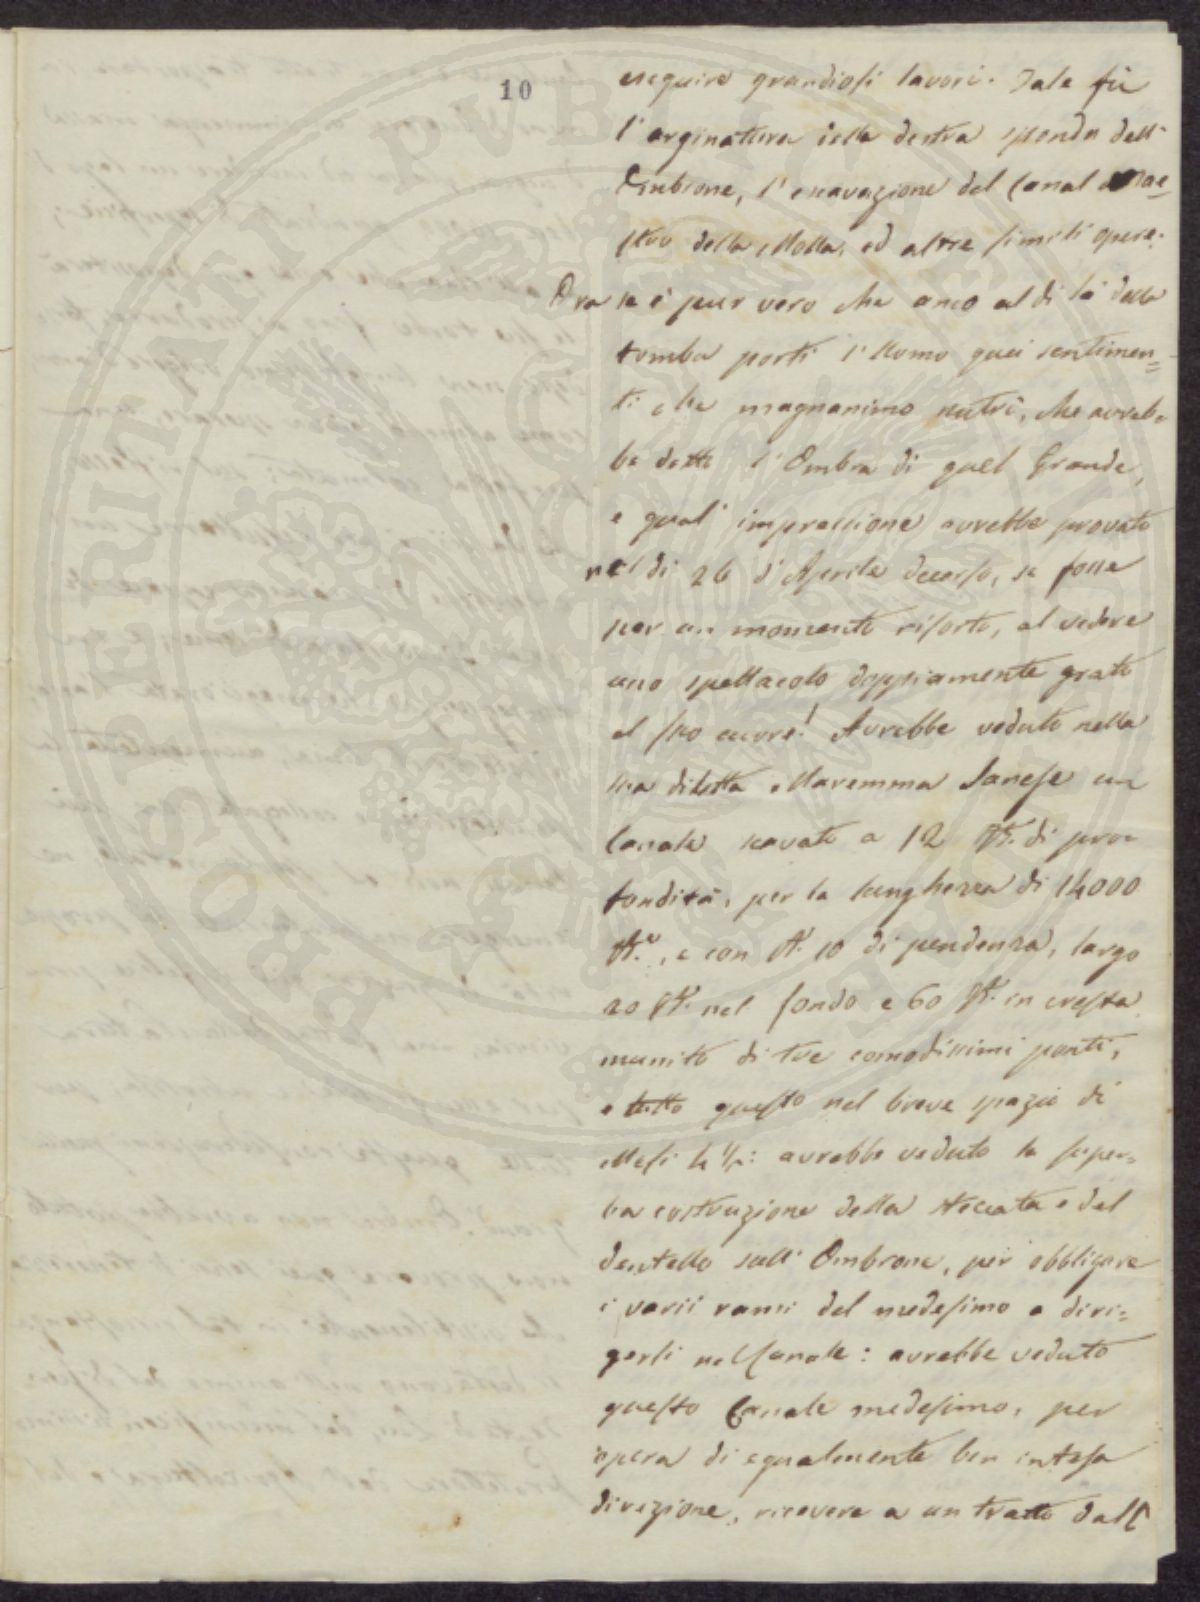 10
eseguire grandiosi lavori. Tale fù
l'arginatura della destra sponda dell'
Ombrone, l'escavazione del Canal Mae=
stro della Molla, ed altre simili opere.
Ora se è pur vero che anco al di là della
tomba porti l'Uomo quei sentimen=
ti che magnanimo nutrì, che avreb=
be detto l'Ombra di quel Grande,
e qual' impressione avrebbe provato
nel dì 26 d'Aprile decorso, se fosse
per un momento risorto, al vedere
uno spettacolo doppiamente grato
al suo cuore! Avrebbe veduto nella
sua diletta Maremma Sanese un
Canale scavato a 12 Br. di pro=
fondità, per la lunghezza di 14000
Br., e con Br. 10 di pendenza, largo
20 Br. nel fondo e 60 Br. in cresta
munito di tre comodissimi ponti,
e tutto questo nel breve spazio di
Mesi 4 1/2: avrebbe veduto la super=
ba costruzione della steccata e del
dentello sull'Ombrone, per obbligare
i varii rami del medesimo a diri=
gersi nel Canale: avrebbe veduto
questo Canale medesimo, per
opera di egualmente ben intesa
direzione, ricevere a un tratto dall'
PROSPERITATI PVBLICAE